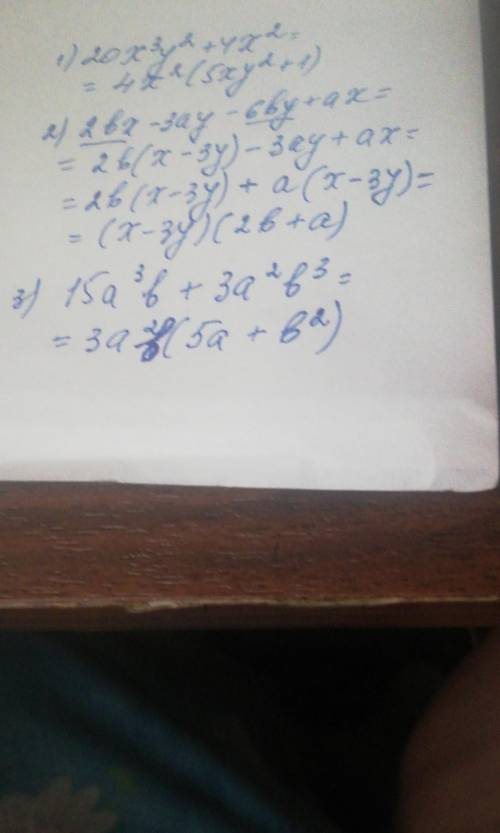 1) 20x³y² + 4x² =
= 4x²(5xy² + 1)
2) 2bx - 3ay - 6by + ax =
= 2b(x - 3y) - 3ay + ax =
= 2b(x - 3y) + a(x - 3y) =
= (x - 3y)(2b + a)
3) 15a³b + 3a²b³ =
= 3a²b(5a + b²)